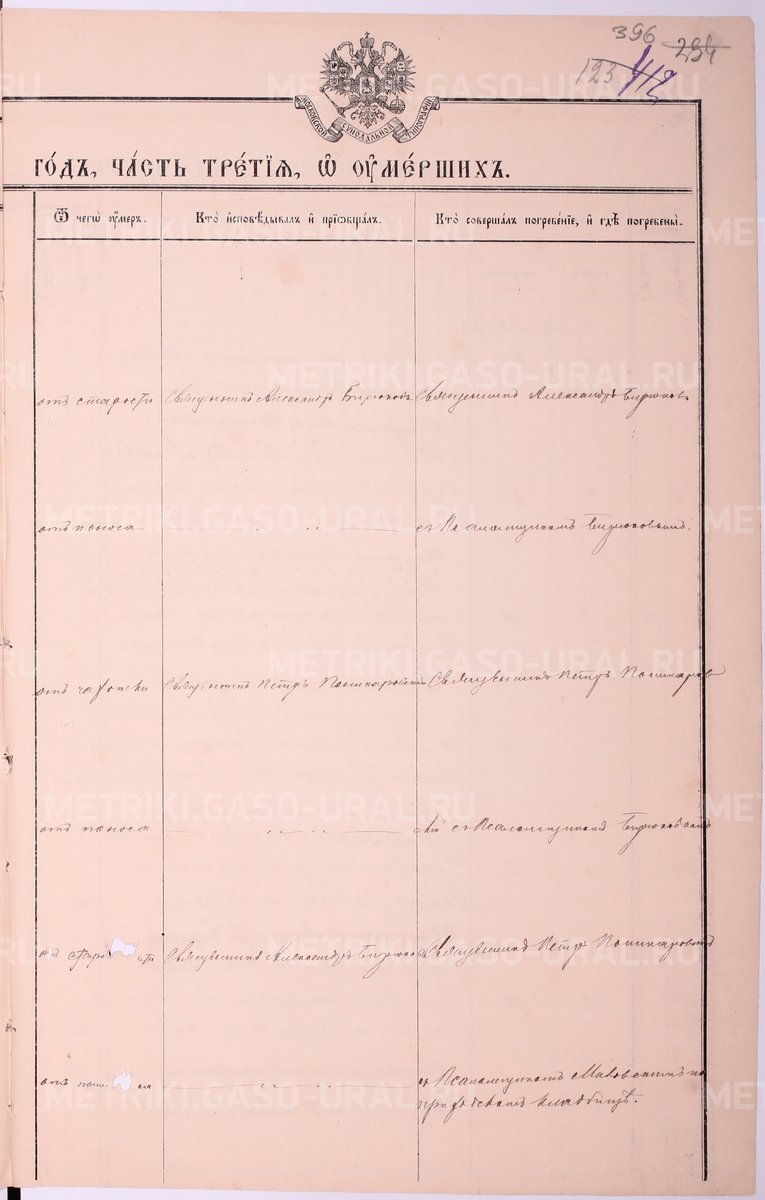 396 294
123 412
МОСКОВСКОЙ СѴНОДАЛЬНОЙ ТИПОГРАФІИ
ГО́ДЪ, ЧА́СТЬ ТРЕ́ТІЯ, Ѡ҆ ОУ҆МЕ́РШИХЪ.
Ѿ чегѡ̀ оу҆́меръ. Кто̀ и҆сповѣ́дывалъ и҆ прїѡбща́лъ. Кто̀ соверша́лъ погребе́нїе, и҆ гдѣ̀ погребены̀.
отъ старости Священникъ Александръ Бирюковъ Священникъ Александръ Бирюковъ
отъ поноса съ Псаломщикомъ Бирюковымъ.
отъ чахотки Священникъ Петръ Священникъ Петръ
отъ поноса съ Псаломщикомъ Бирюковымъ
Священникъ Александръ Бирюко Священникъ Петръ
отъ поно са съ Псаломщикомъ на
приходскомъ кладбищѣ.
METRIKI.GASO-URAL.RU